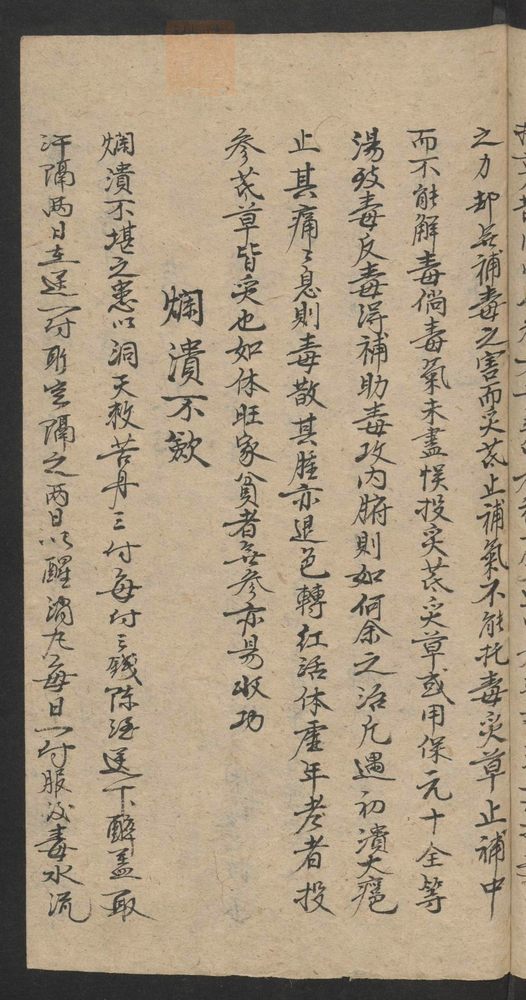 之力却無補毒之害而炙芪止補氣不能托毒炙草止補中
而不能解毒倘毒氣未盡悮投炙芪炙草或用保元十全等
湯致毒反毒得補助毒攻内腑則如何余之治凡遇初潰大癰
止其痛〻息則毒散其腫亦退色轉红活体虚年老者投
参芪草皆炙也如体旺家貧者無参亦易收功
爛潰不歛
爛潰不堪之患以洞天救苦丹三付每付三錢陈酒送下醉盖取
汗隔两日再送一付隔之两日以醒消丸每日一付服後毒水流